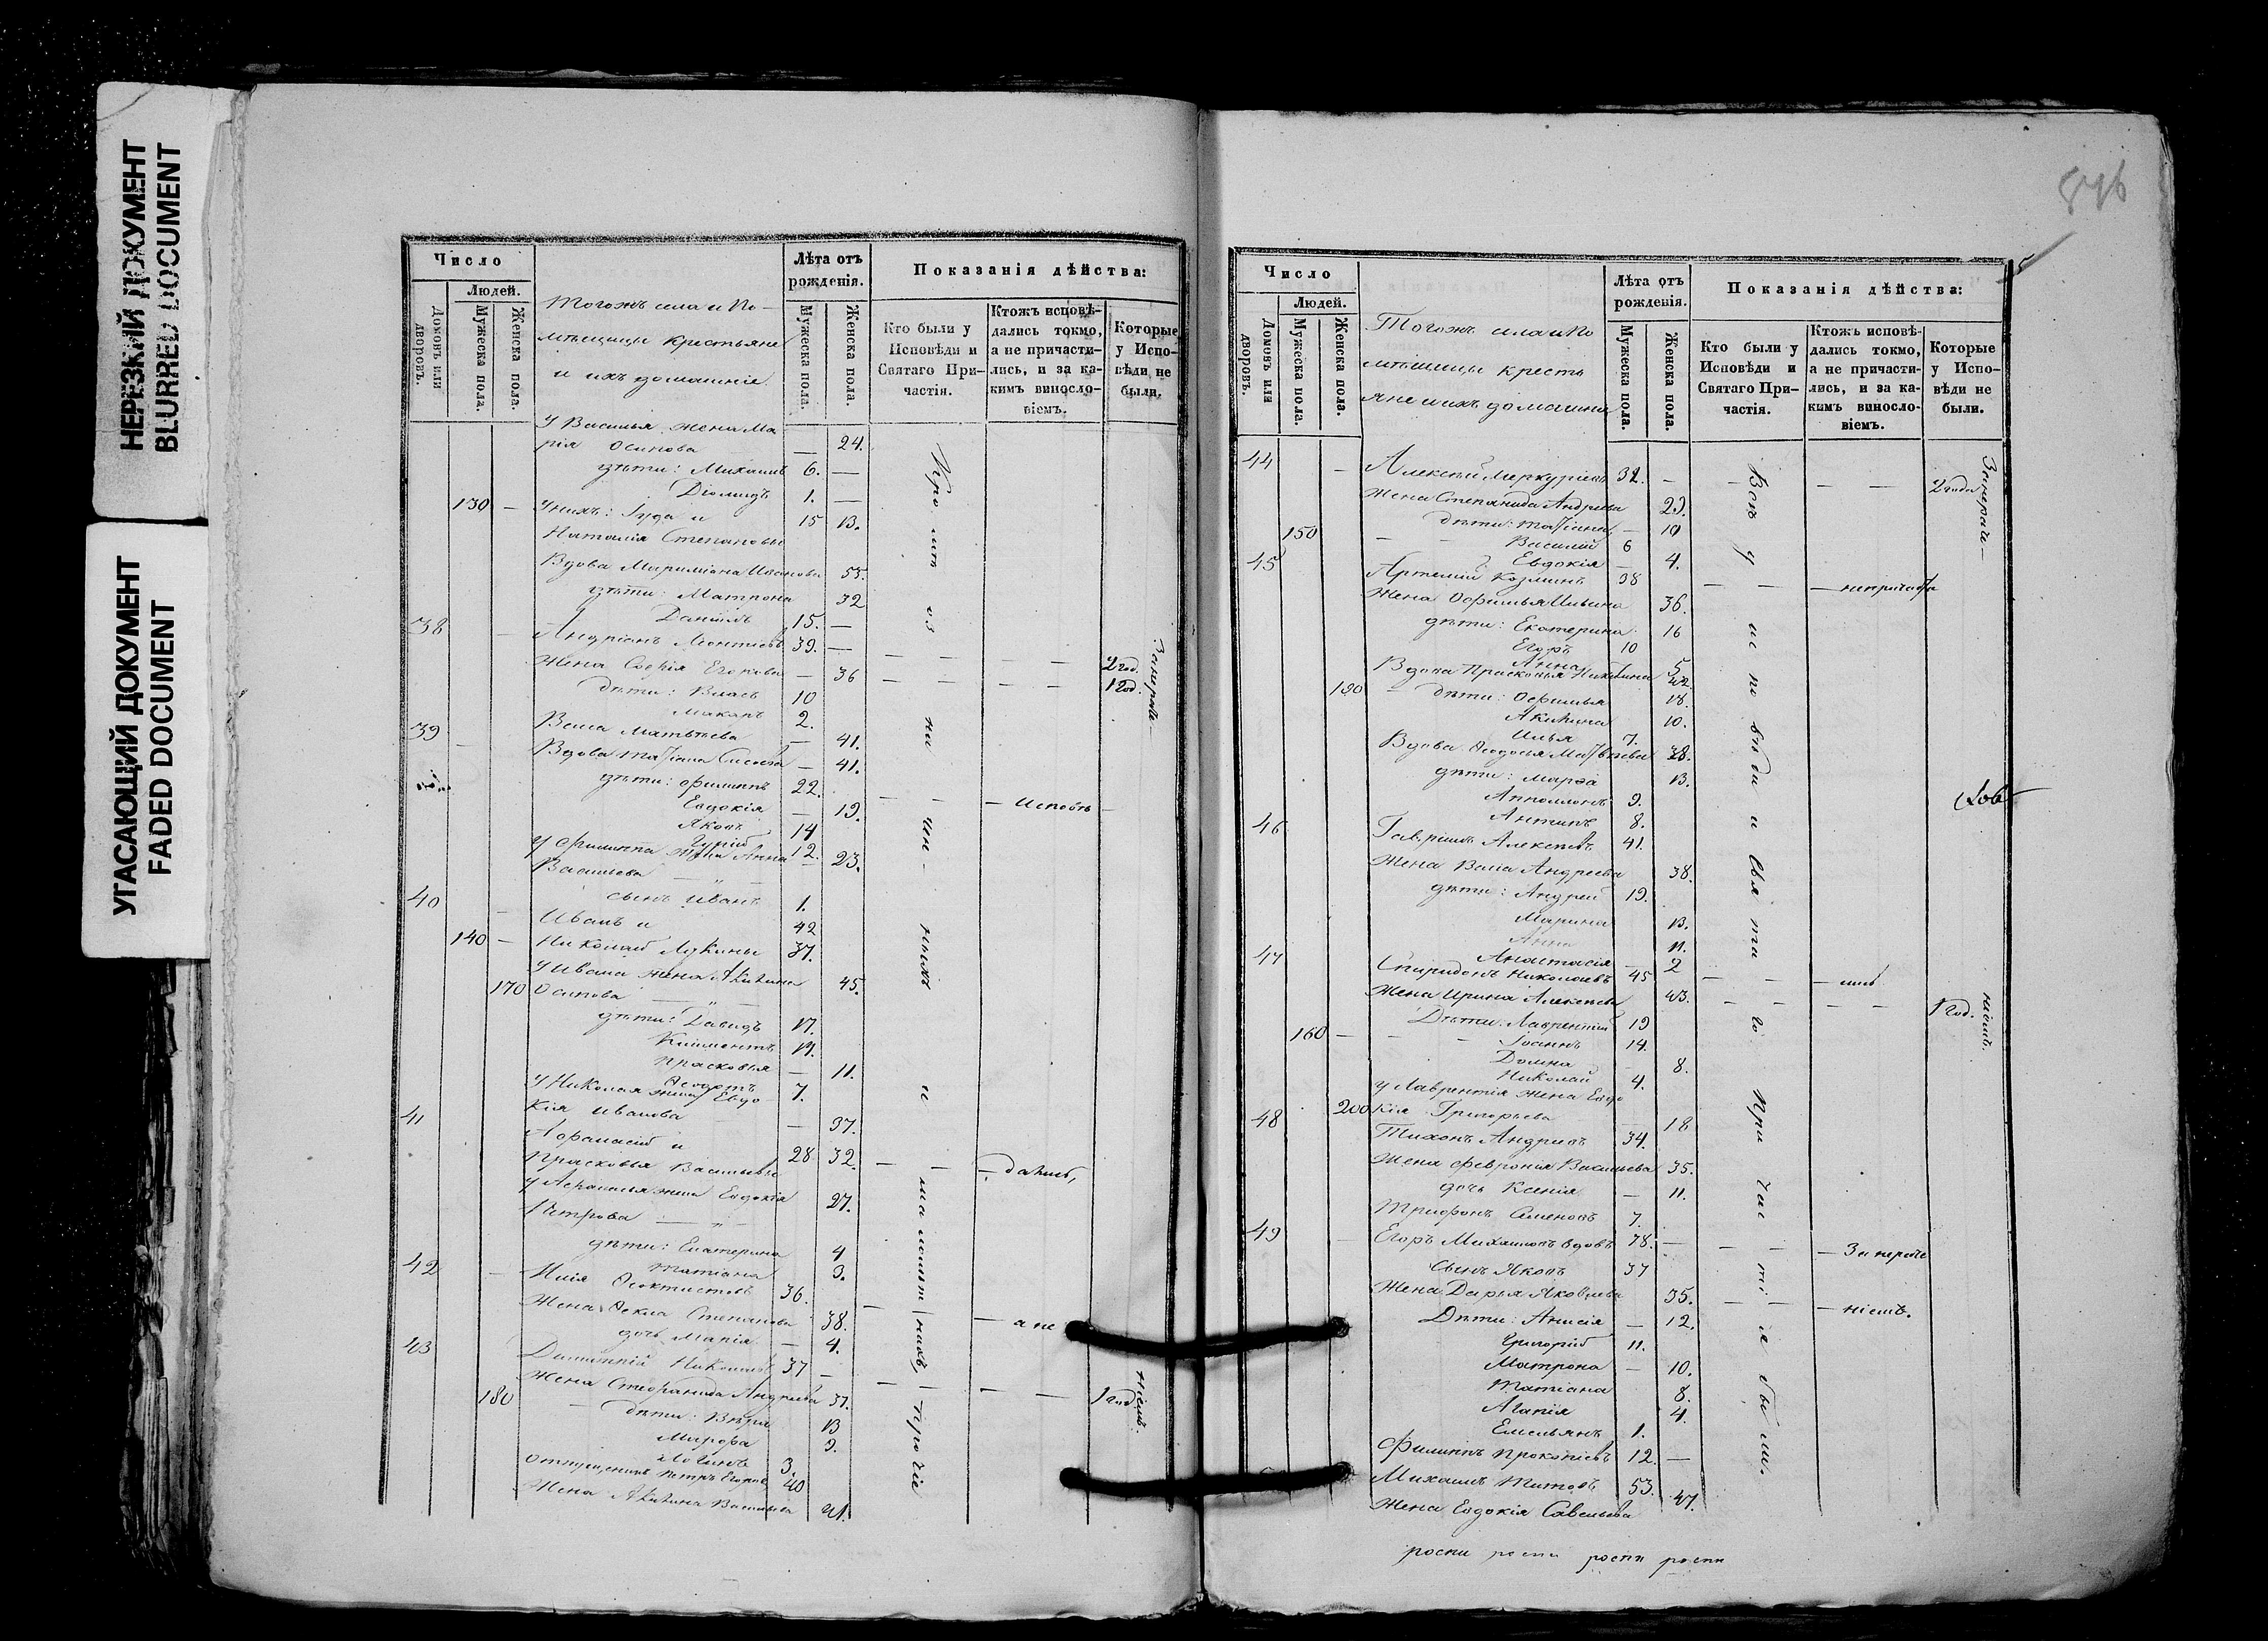 НЕРЕЗКИЙ ДОКУМЕНТ
BLURRED DOCUMENT
УГАСАЮЩИЙ ДОКУМЕНТ
FADED DOCUMENT
Число
Людей.
Домовъ или дворовъ.
Мужеска пола.
Женска пола.
Тогожъ села и По-
мѣщицы крестьяне
и ихъ домашніе.
Лѣта отъ рожденія.
Мужеска пола.
Женска пола.
Показанія дѣйства:
Кто были у Исповѣди и Святаго При-частія.
Ктожъ исповѣ-дались токмо, а не причасти-лись, и за ка-кимъ винословіемъ.
Которые у Испо-вѣди не были.
У Василья жена Ма
рія Осипова — 24.
дѣти: Михаилъ 6. —
Діомидъ 1. —
130 — У нихъ: Іуда и 15 13.
Наталія Степановы
Вдова Иванова 55.
дѣти: Матрона 32
Даніилъ 15. —
38 — Андріанъ Леонтьевъ 39. —
Жена Софія Егорова — 36 — — — — 2 год.
дѣти: Власъ 10 — — — — 1 год.
Макаръ 2.
39 Васса Матвѣева — 41.
Вдова Татіана — 41.
дѣти: Филиппъ 22.
Евдокія — 19. — — — исповѣ
Яковъ 14
Гурій 12.
У Филиппа жена Анна 23.
Васильева
сынъ Иванъ 1.
40 — Иванъ и 42
140 — Николай Лукины 37.
У Ивана жена Акилина 45.
170 Осипова
дѣти: Давидъ 17.
Климентъ
Прасковья — 11.
Ѳеодотъ 7.
У Николая жена Евдо
кія Иванова — 37.
41 Афанасій и 28 32. — — — дались,
Прасковья Васильевы
У Афанасья жена Евдокія 27.
Петрова
дѣти: Екатерина 4
Татіана 3.
42 — Илія Ѳеоктистовъ 36.
Жена Ѳекла Степанова 38. — — а не
дочь Марія — 4.
43 Николаевъ 37 —
Жена Стефанида Андреева 37. — — — 1 год
180 — дѣти: Вѣра 13
9.
Логинъ 3.
Петръ Егоровъ 40
Жена Акилина Васильева 41.
Кромѣ изъ ни чен-ныхъ и малолѣтнихъ, прочіе
Занерачі—
ніемъ.
846
5
Число
Людей.
Домовъ или дворовъ.
Мужеска пола.
Женска пола.
Тогожъ села и По
мѣщицы кресть
яне и ихъ домашніе
Лѣта отъ рожденія.
Мужеска пола.
Женска пола.
Показанія дѣйства:
Кто были у Исповѣди и Святаго При-частія.
Ктожъ исповѣ-дались токмо, а не причасти-лись, и за ка-кимъ виносло-віемъ.
Которые у Испо-вѣди не были.
44 — Алексѣй Меркурьевъ 32. — — — — 2 года
Жена Степанида Андреева 29.
дѣти: Татіана — 10
150 — — Василій 6
Евдокія — 4.
45 Артемій Козминъ 38 — — — непричаст
Жена Офимья Ильина 36.
дѣти: Екатерина 16
Егоръ 10
Анна 5
Вдова Прасковья Никитина 42.
190 — дѣти: Офимья 18.
Акилина 10.
Илья 7.
Вдова Ѳеодосья Матвѣева 38.
дѣти: Марѳа 13.
Апполлонъ 9.
Антипъ 8.
46 Гавріилъ Алексѣевъ 41.
Жена Васса Андреева 38.
дѣти: Андрей 19.
Марина 13.
Анна 11.
Анастасія — 2
47 Спиридонъ Николаевъ 45 — — —
Жена Ирина Алексѣева 43. — — — — 1 год.
Дѣти: Лаврентій 19
160 — — — Іоаннъ 14.
Домна — 8.
Николай 4.
У Лаврентія жена Евдо
200 кія Григорьева — 18
48 Тихонъ Андреевъ 34.
Жена Февронія Васильева 35.
дочь Ксенія — 11.
Трифонъ Семеновъ 7.
49 — Егоръ Михайловъ вдовъ 78. — — — — Занераче
Сынъ Яковъ 37
Жена Дарья Яковлева 35. — — — ніемъ.
Дѣти: Анисія — 12.
Григорій 11.
Матрона — 10.
Татіана 8.
Агапія 4.
Емельянъ 1.
Филиппъ Прокопіевъ 12. —
Михаилъ Титовъ 53.
Жена Евдокія Савельева 47.
Всѣ у исповѣди и Святаго Причастія были.
Занерачі—
ніемъ.
роспи роспи роспи роспи